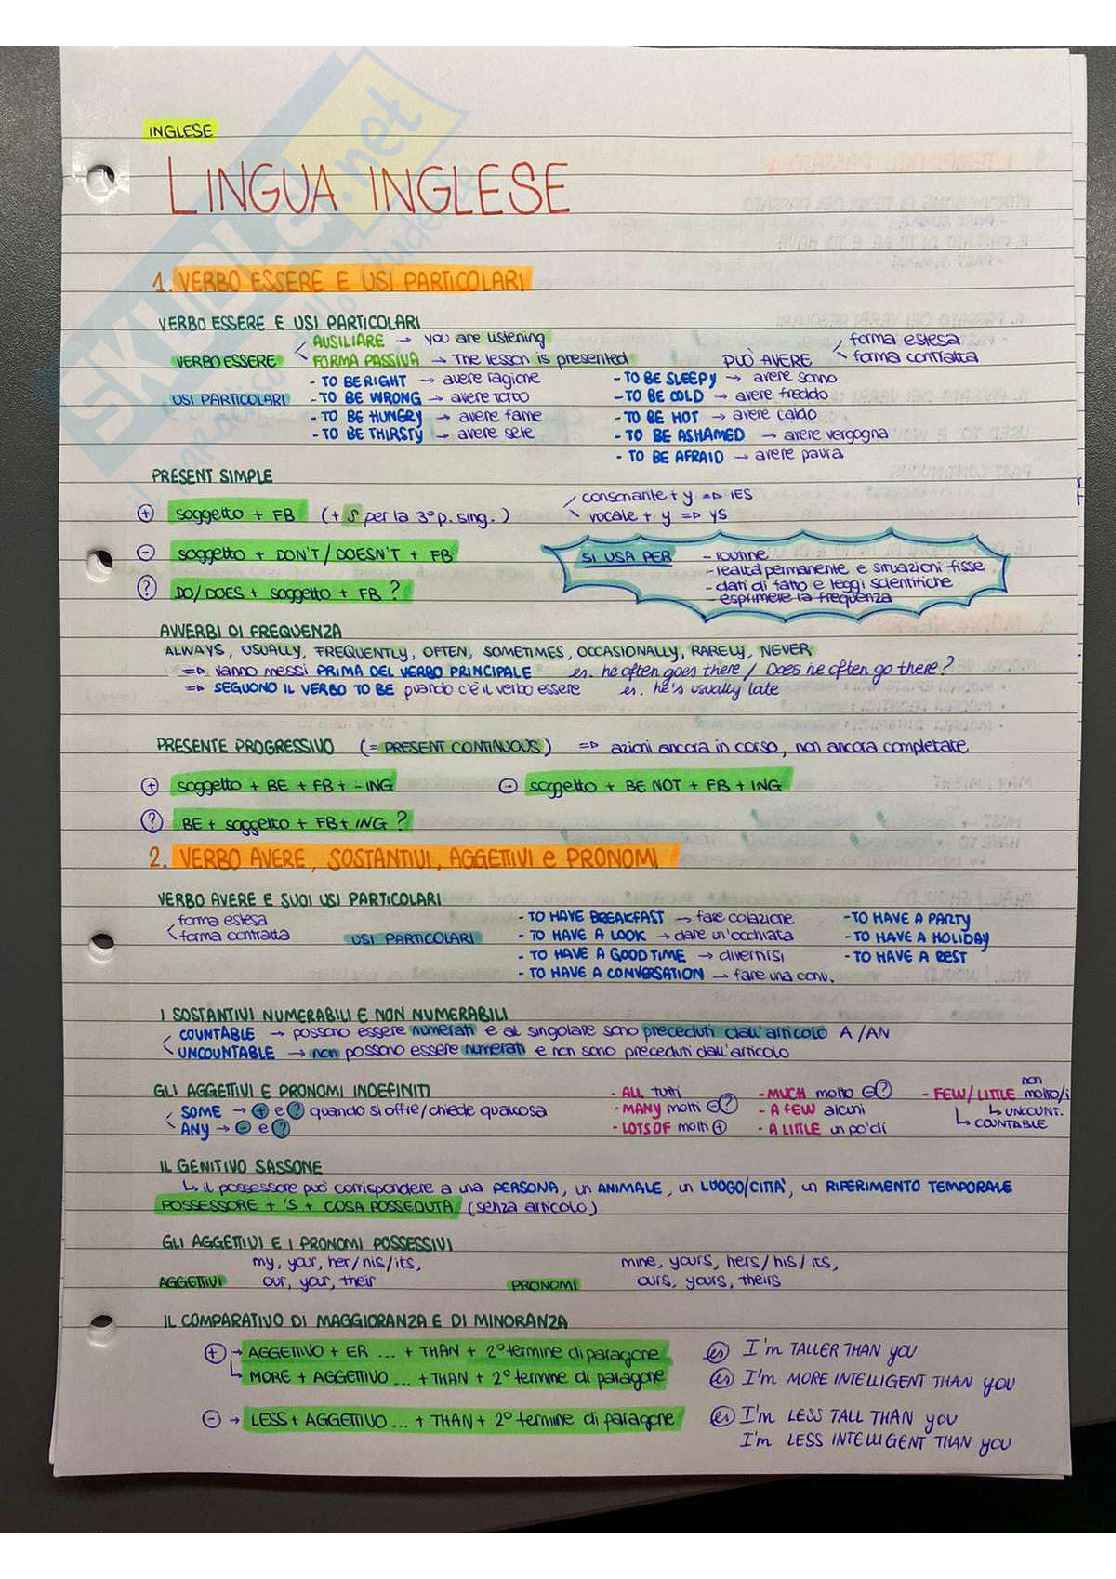 INGLESE
LINGUA INGLESE
1. VERBO ESSERE E USI PARTICOLARI
VERBO ESSERE E USI PARTICOLARI
VERBO ESSERE
AUSILIARE → you are listening
FORMA PASSIVA → The lesson is presented
PUÒ AVERE
forma estesa
forma contratta
USI PARTICOLARI
- TO BE RIGHT → avere ragione
- TO BE WRONG → avere torto
- TO BE HUNGRY → avere fame
- TO BE THIRSTY → avere sete
- TO BE SLEEPY → avere sonno
- TO BE COLD → avere freddo
- TO BE HOT → avere caldo
- TO BE ASHAMED → avere vergogna
- TO BE AFRAID → avere paura
PRESENT SIMPLE
+ soggetto + FB (+ S per la 3° p. sing.)
consonante + y => IES
vocale + y => YS
- soggetto + DON'T / DOESN'T + FB
? DO/DOES + soggetto + FB ?
SI USA PER
- routine
- realtà permanente e situazioni fisse
- dati di fatto e leggi scientifiche
- esprimere la frequenza
AVVERBI DI FREQUENZA
ALWAYS, USUALLY, FREQUENTLY, OFTEN, SOMETIMES, OCCASIONALLY, RARELY, NEVER
=> vanno messi PRIMA DEL VERBO PRINCIPALE es. he often goes there / Does he often go there?
=> SEGUONO IL VERBO TO BE quando c'è il verbo essere es. he's usually late
PRESENTE PROGRESSIVO (= PRESENT CONTINUOUS) => azioni ancora in corso, non ancora completate
+ soggetto + BE + FB + -ING
- soggetto + BE NOT + FB + ING
? BE + soggetto + FB + ING ?
2. VERBO AVERE, SOSTANTIVI, AGGETTIVI e PRONOMI
VERBO AVERE E SUOI USI PARTICOLARI
forma estesa
forma contratta
USI PARTICOLARI
- TO HAVE BREAKFAST → fare colazione
- TO HAVE A LOOK → dare un'occhiata
- TO HAVE A GOOD TIME → divertirsi
- TO HAVE A CONVERSATION → fare una conv.
- TO HAVE A PARTY
- TO HAVE A HOLIDAY
- TO HAVE A REST
I SOSTANTIVI NUMERABILI E NON NUMERABILI
COUNTABLE → possono essere numerati e al singolare sono preceduti dall'articolo A / AN
UNCOUNTABLE → non possono essere numerati e non sono preceduti dall'articolo
GLI AGGETTIVI E PRONOMI INDEFINITI
SOME → + e ? quando si offre/chiede qualcosa
ANY → - e ?
- ALL tutti
- MANY molti - ?
- LOTS OF molti +
- MUCH molto - ?
- A FEW alcuni
- A LITTLE un po' di
- FEW / LITTLE non molto/i
↳ UNCOUNT.
↳ COUNTABLE
IL GENITIVO SASSONE
↳ il possessore può corrispondere a una PERSONA, un ANIMALE, un LUOGO/CITTÀ, un RIFERIMENTO TEMPORALE
POSSESSORE + 'S + COSA POSSEDUTA (senza articolo)
GLI AGGETTIVI E I PRONOMI POSSESSIVI
AGGETTIVI
my, your, her/his/its,
our, your, their
PRONOMI
mine, yours, hers/his/its,
ours, yours, theirs
IL COMPARATIVO DI MAGGIORANZA E DI MINORANZA
+ → AGGETTIVO + ER ... + THAN + 2° termine di paragone
es I'm TALLER THAN YOU
↳ MORE + AGGETTIVO ... + THAN + 2° termine di paragone
es I'm MORE INTELLIGENT THAN YOU
- → LESS + AGGETTIVO ... + THAN + 2° termine di paragone
es I'm LESS TALL THAN YOU
I'm LESS INTELLIGENT THAN YOU